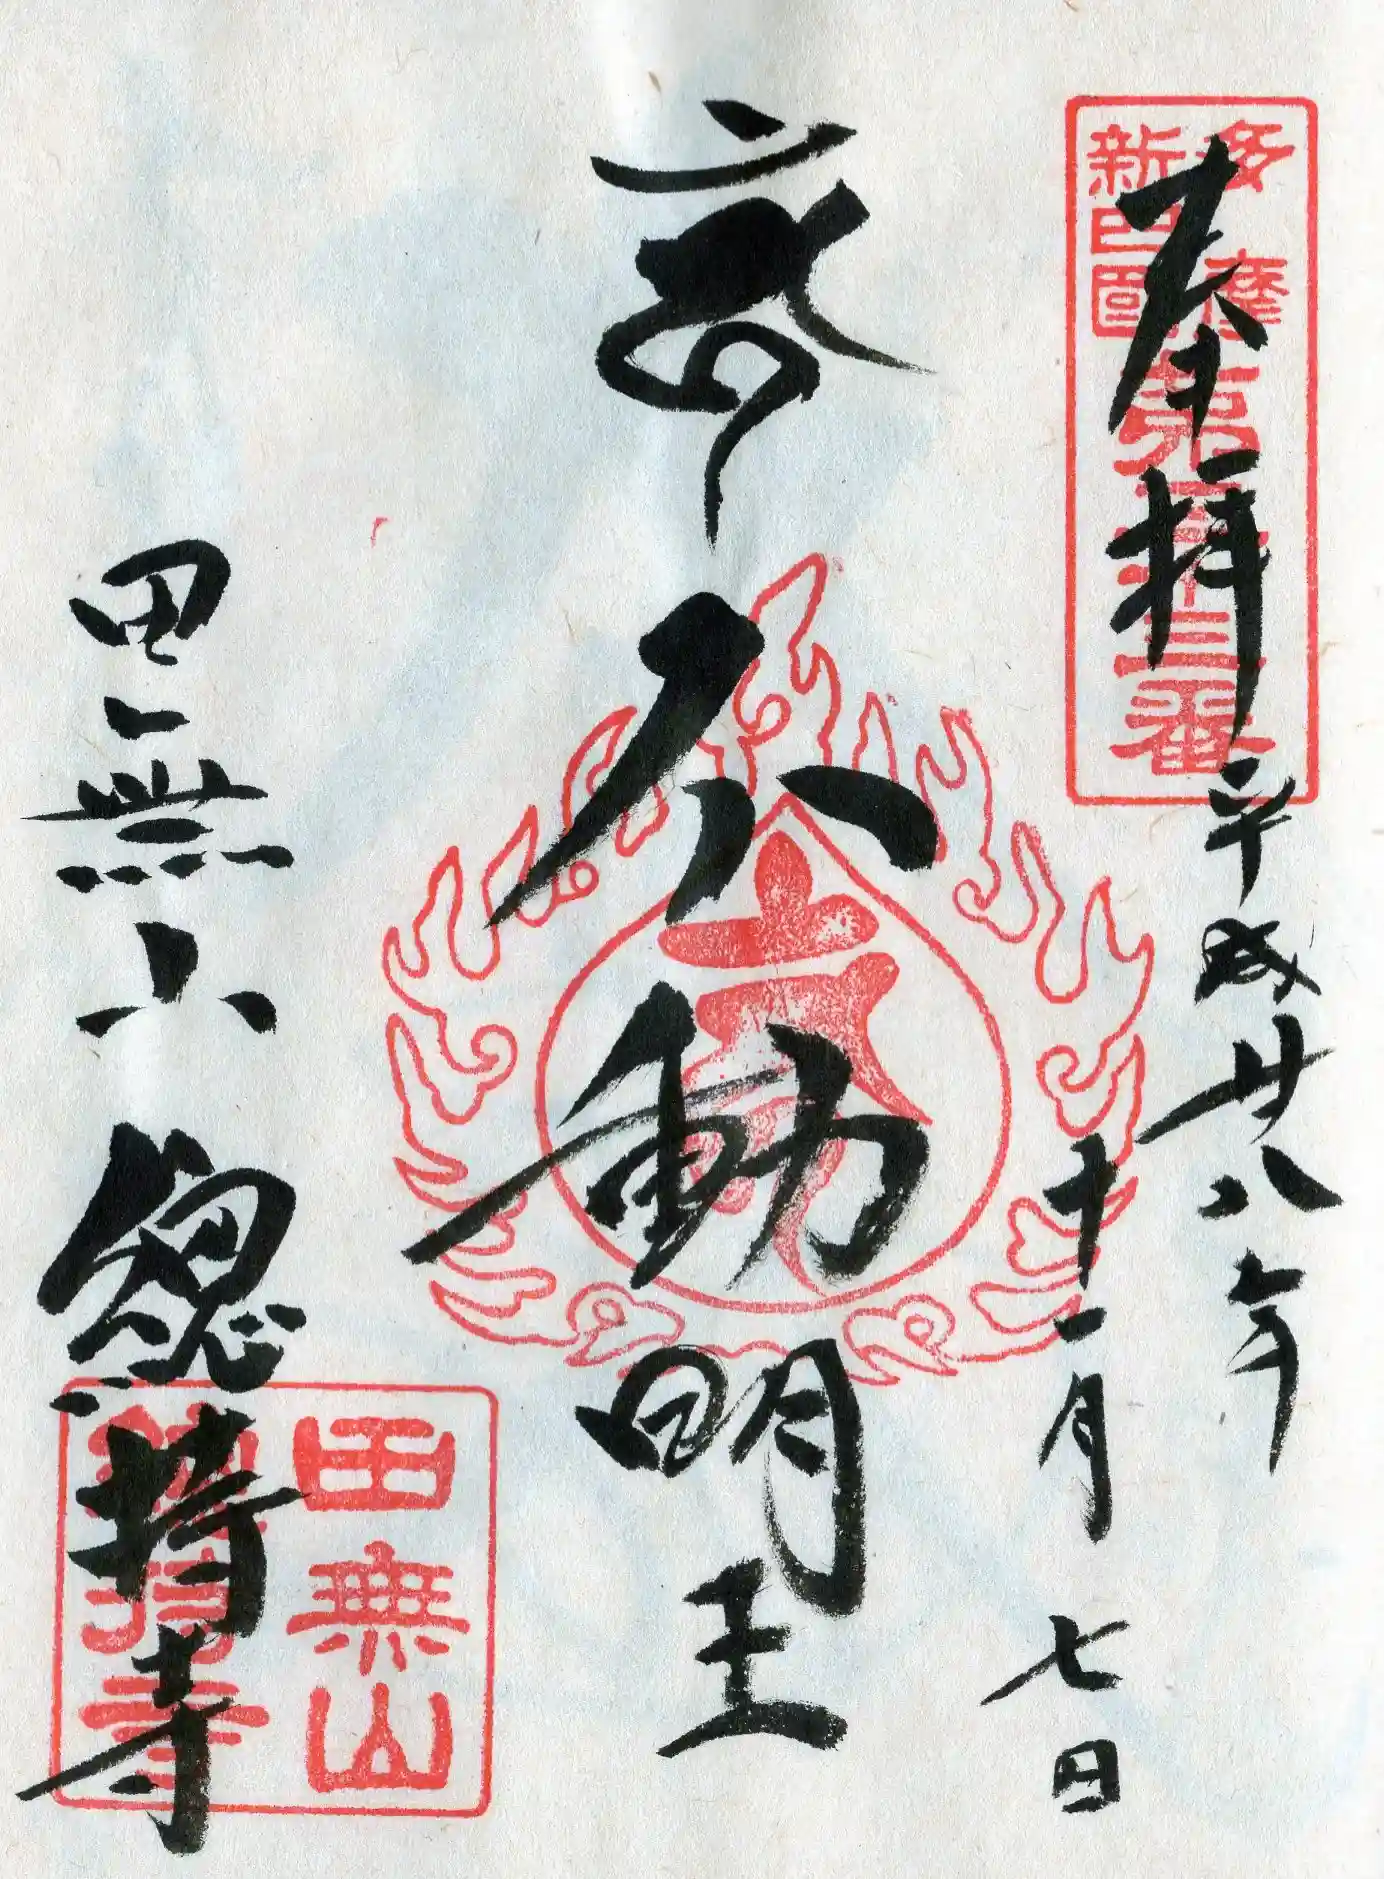 多摩
新四國
第三十三番
奉拝
平成廿八年
十一月七日
不動明王
田無山
總持寺
田無山
總持寺